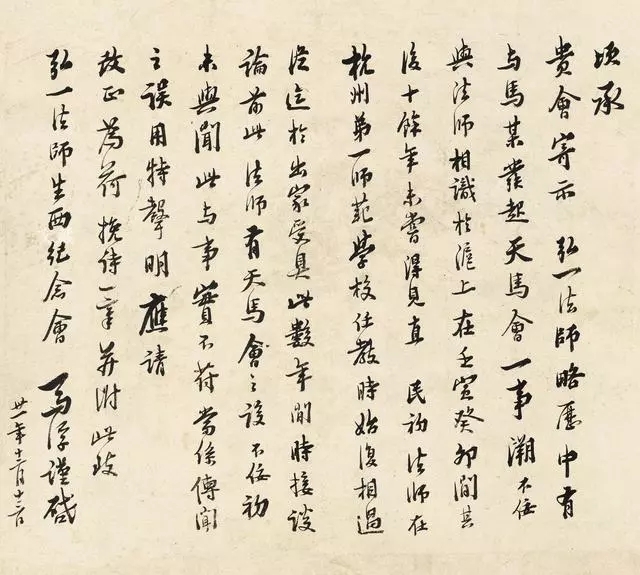 頃承
貴會寄示 弘一法師略歷中有
与馬某發起天馬會一事溯不佞
與法師相識於滬上在壬寅癸卯間其
後十餘年未嘗得見直 民初法師在
杭州第一師範學校任教時始復相過
從迄於出家受具此數年間時接談
論前此法師有天馬會之設不佞初
未與聞此与事實不符當係傳聞
之誤用特聲明應請
改正為荷 挽詩一章并附此致
弘一法師生西紀念會 馬浮謹啟
卅一年十二月十二日